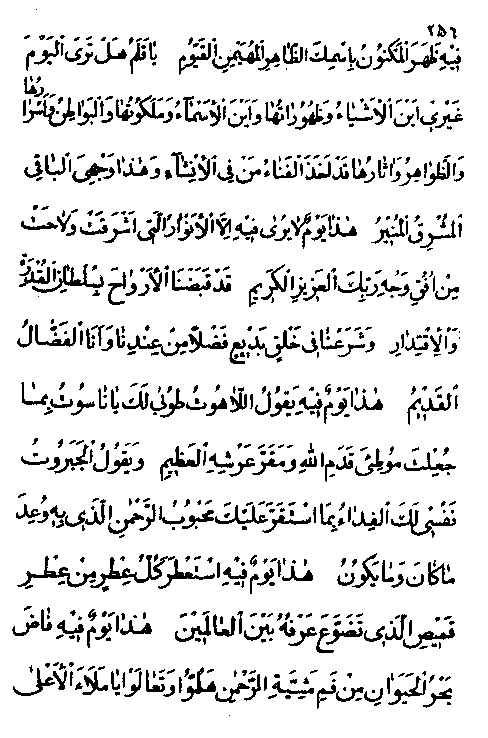 ٢٥٦
فِيهِ ظَهَرَ الْمَكْنُونُ بِاسْمِكَ الظَّاهِرِ الْمُهَيْمِنِ الْقَيُّومِ يَا قَلَمُ هَلْ تَرَى الْيَوْمَ
غَيْرِي أَيْنَ الْأَشْيَاءُ وَظُهُورَاتُهَا وَأَيْنَ الْأَسْمَاءُ وَمَلَكُوتُهَا وَالْبَوَاطِنُ وَأَسْرَارُهَا
وَالظَّوَاهِرُ وَآثَارُهَا قَدْ أَخَذَ الْفَنَاءُ مَنْ فِي الْإِنْشَاءِ وَهَذَا وَجْهِيَ الْبَاقِي
الْمُشْرِقُ الْمُنِيرُ هَذَا يَوْمٌ لَا يُرَى فِيهِ إِلَّا الْأَنْوَارُ الَّتِي أَشْرَقَتْ وَلَاحَتْ
مِنْ أُفُقِ وَجْهِ رَبِّكَ الْعَزِيزِ الْكَرِيمِ قَدْ قَبَضْنَا الْأَرْوَاحَ بِسُلْطَانِ الْقُدْرَةِ
وَالْاِقْتِدَارِ وَشَرَعْنَا فِي خَلْقٍ بَدِيعٍ فَضْلًا مِنْ عِنْدِنَا وَأَنَا الْفَضَّالُ
الْقَدِيمُ هَذَا يَوْمٌ فِيهِ يَقُولُ اللَّاهُوتُ طُوبَى لَكَ يَا نَاسُوتُ بِمَا
جُعِلْتَ مَوْطِئَ قَدَمِ اللهِ وَمَقَرَّ عَرْشِهِ الْعَظِيمِ وَيَقُولُ الْجَبَرُوتُ
نَفْسِي لَكَ الْفِدَاءُ بِمَا اسْتَقَرَّ عَلَيْكَ مَحْبُوبُ الرَّحْمَنِ الَّذِي بِهِ وُعِدَ
مَا كَانَ وَمَا يَكُونُ هَذَا يَوْمٌ فِيهِ اسْتَعْطَرَ كُلُّ عِطْرٍ مِنْ عِطْرِ
قَمِيصِي الَّذِي تَضَوَّعَ عَرْفُهُ بَيْنَ الْعَالَمِينَ هَذَا يَوْمٌ فِيهِ فَاضَ
بَحْرُ الْحَيَوَانِ مِنْ فَمِ مَشِيَّةِ الرَّحْمَنِ هَلُمُّوا وَتَعَالَوْا يَا مَلَأَ الْأَعْلَى